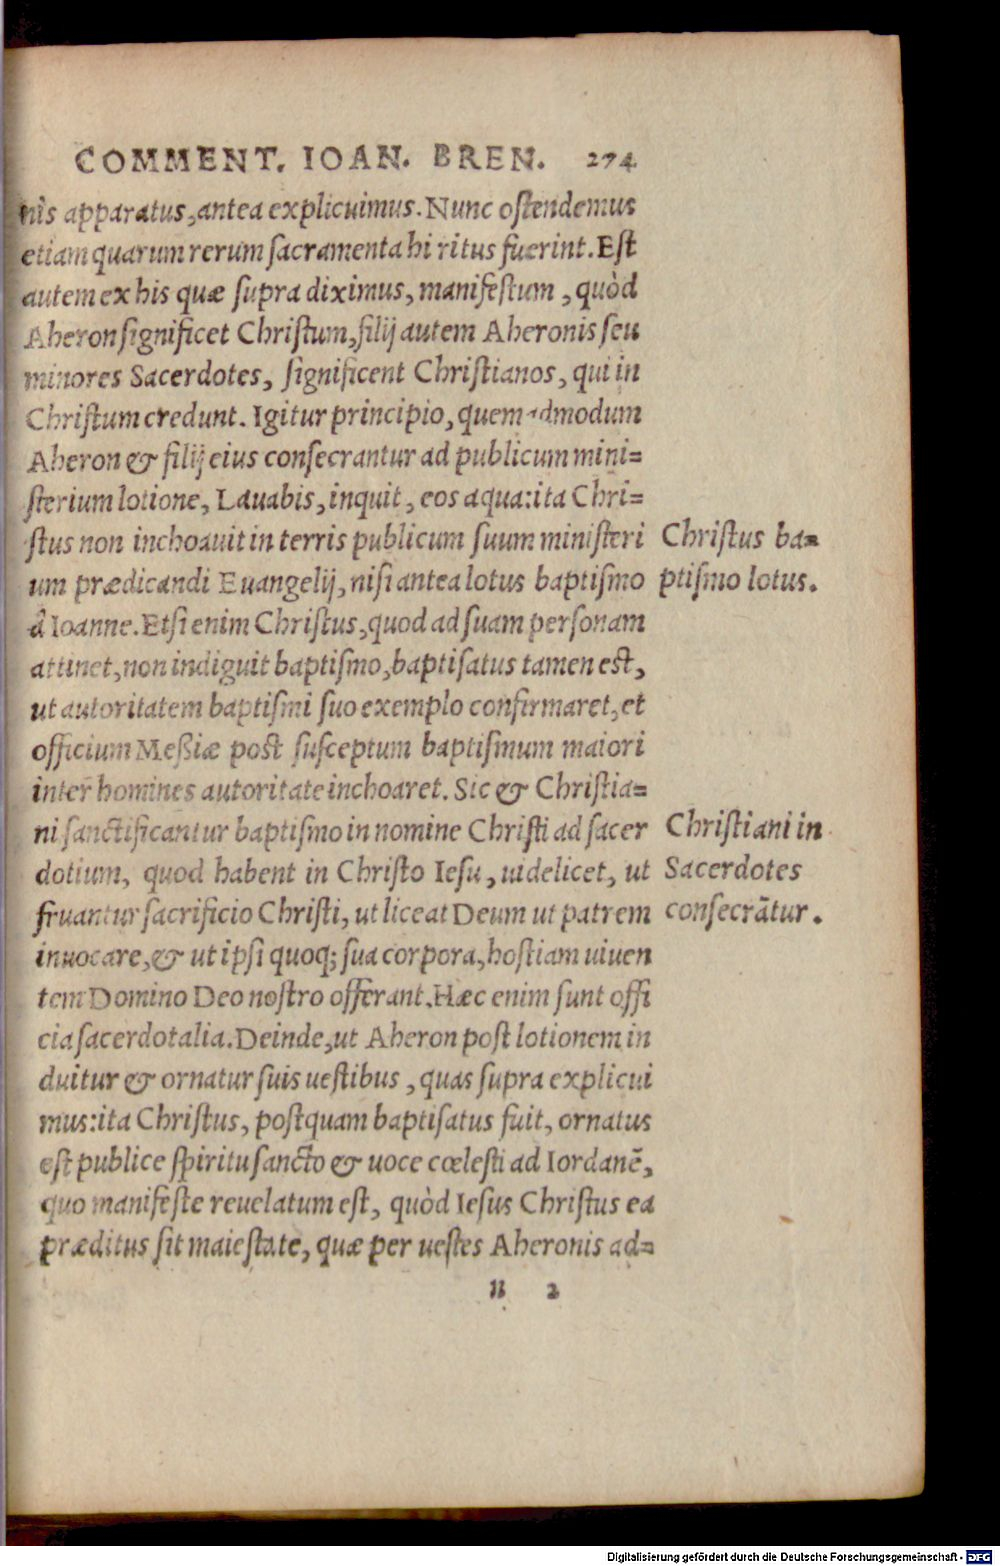 COMMENT. IOAN. BREN. 274
nis apparatus, antea explicuimus. Nunc ostendemus
etiam quarum rerum sacramenta hi ritus fuerint. Est
autem ex his quæ supra diximus, manifestum, quòd
Aheron significet Christum, filij autem Aheronis seu
minores Sacerdotes, significent Christianos, qui in
Christum credunt. Igitur principio, quemadmodum
Aheron & filij eius consecrantur ad publicum mini=
sterium lotione, Lauabis, inquit, eos aqua: ita Chri=
stus non inchoauit in terris publicum suum ministeri
um prædicandi Euangelij, nisi antea lotus baptismo
à Ioanne. Etsi enim Christus, quod ad suam personam
attinet, non indiguit baptismo, baptisatus tamen est,
ut autoritatem baptismi suo exemplo confirmaret, et
officium Meßiæ post susceptum baptismum maiori
inter homines autoritate inchoaret. Sic & Christia=
ni sanctificantur baptismo in nomine Christi ad sacer
dotium, quod habent in Christo Iesu, uidelicet, ut
fruantur sacrificio Christi, ut liceat Deum ut patrem
inuocare, & ut ipsi quoq; sua corpora, hostiam uiuen
tem Domino Deo nostro offerant. Hæc enim sunt offi
cia sacerdotalia. Deinde, ut Aheron post lotionem in
duitur & ornatur suis uestibus, quas supra explicui
mus: ita Christus, postquam baptisatus fuit, ornatus
est publice spiritu sancto & uoce cœlesti ad Iordanē,
quo manifeste reuelatum est, quòd Iesus Christus ea
præditus sit maiestate, quæ per uestes Aheronis ad=
Christus ba=
ptismo lotus.
Christiani in
Sacerdotes
consecrātur.
n 2
Digitalisierung gefördert durch die Deutsche Forschungsgemeinschaft - DFG